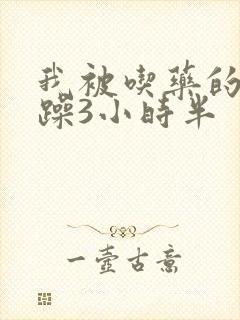 我被喫藥的
躁3小時半
一壺古意